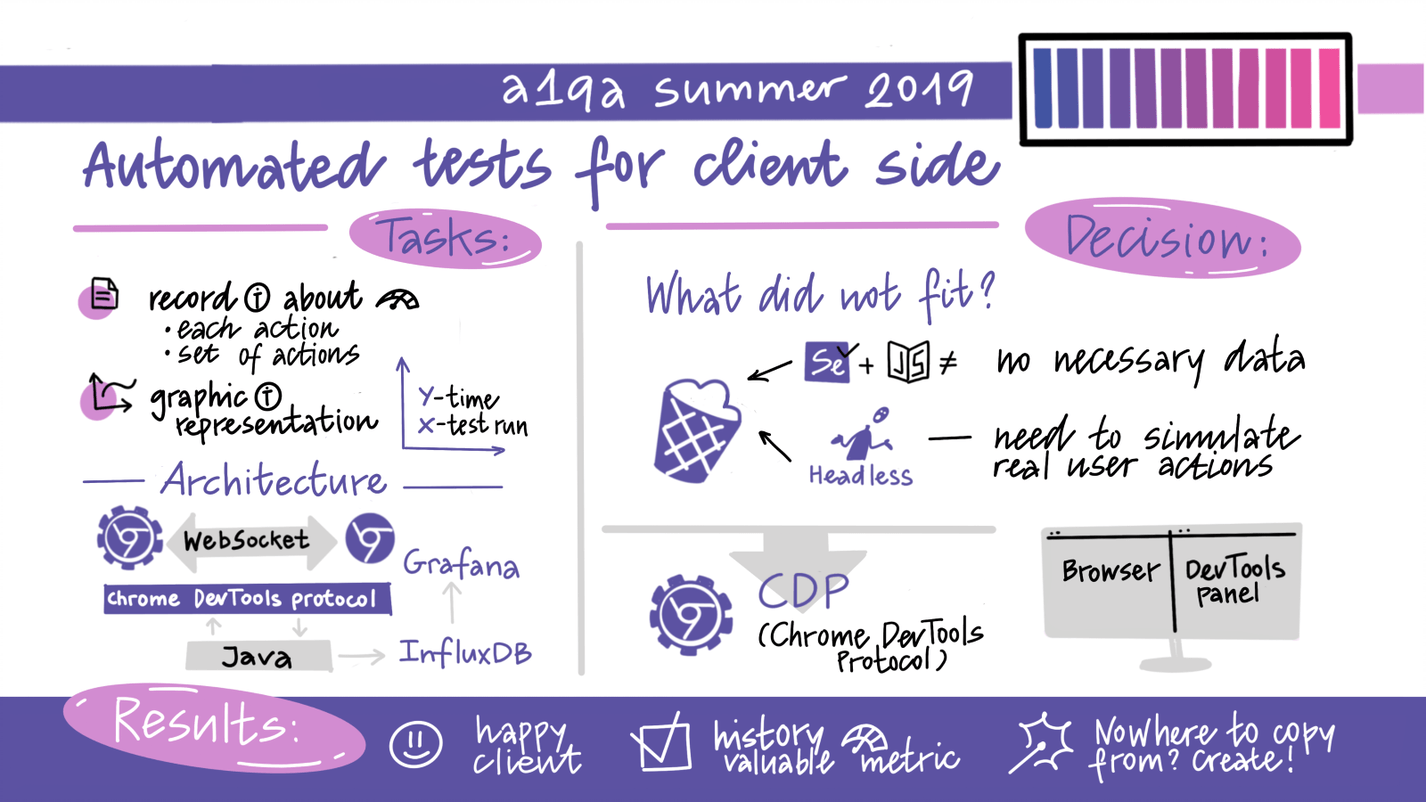 a1qa summer 2019
Automated tests for client side
Tasks:
record i about
• each action
• set of actions
graphic i
representation
Y-time
X-test run
Architecture
WebSocket
Chrome DevTools protocol
Java
InfluxDB
Grafana
Decision:
What did not fit?
Se + JS ≠ no necessary data
Headless — need to simulate
real user actions
CDP
(Chrome DevTools
Protocol)
Browser
DevTools
panel
Results:
happy
client
history
valuable metric
Nowhere to copy
from? Create!